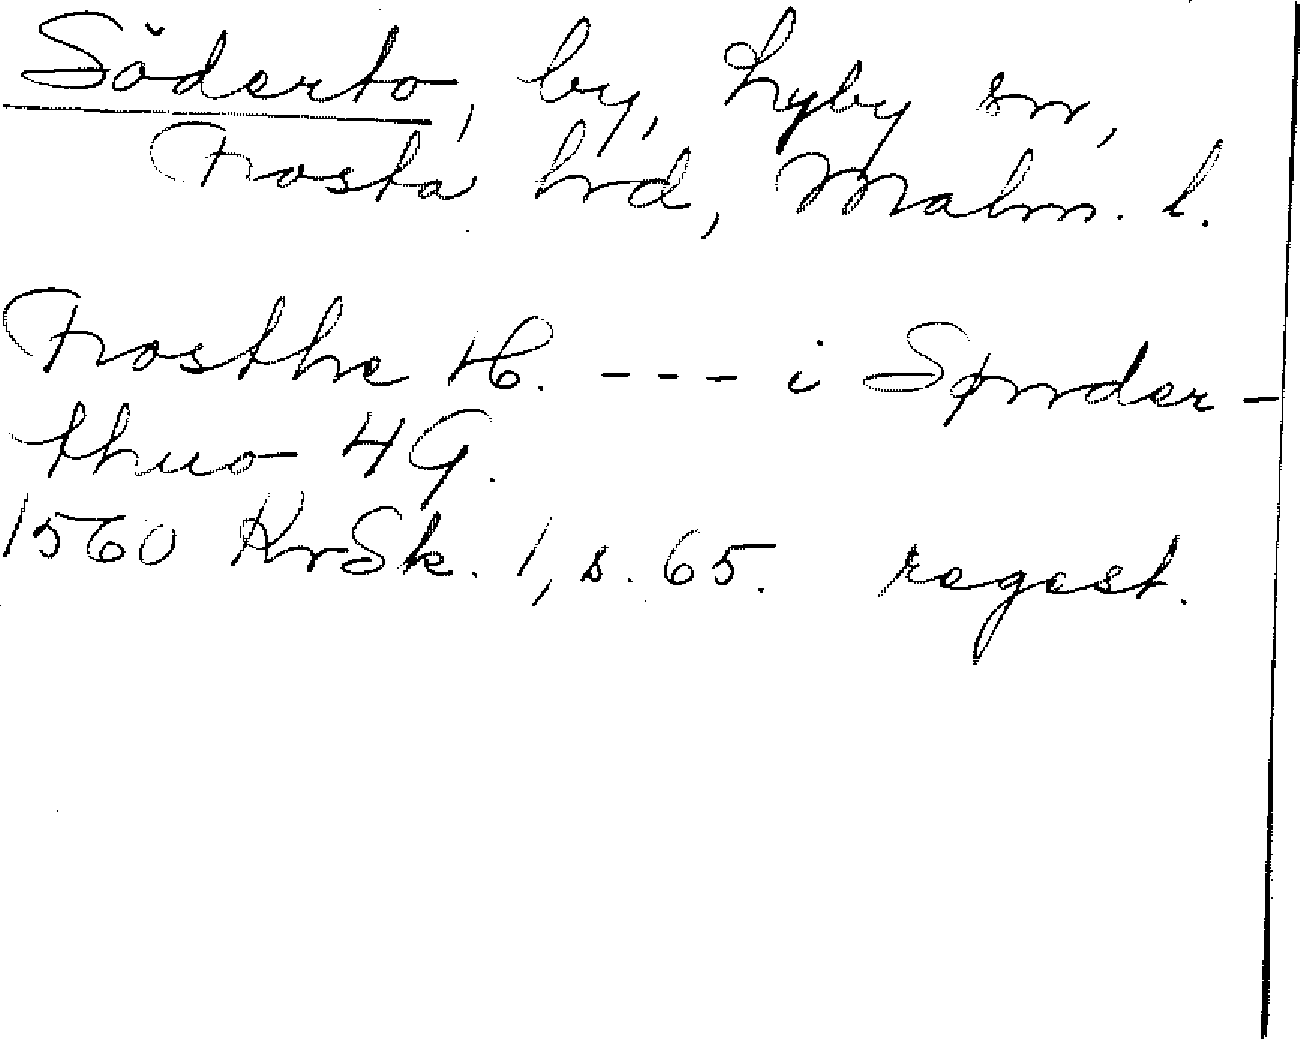 Söderto, by, Lyby sn,
Frosta hrd, Malm. l.
Frosthe H. --- i Synder-
thuo 4 G.
1560 KrSk. 1, s. 65. regest.